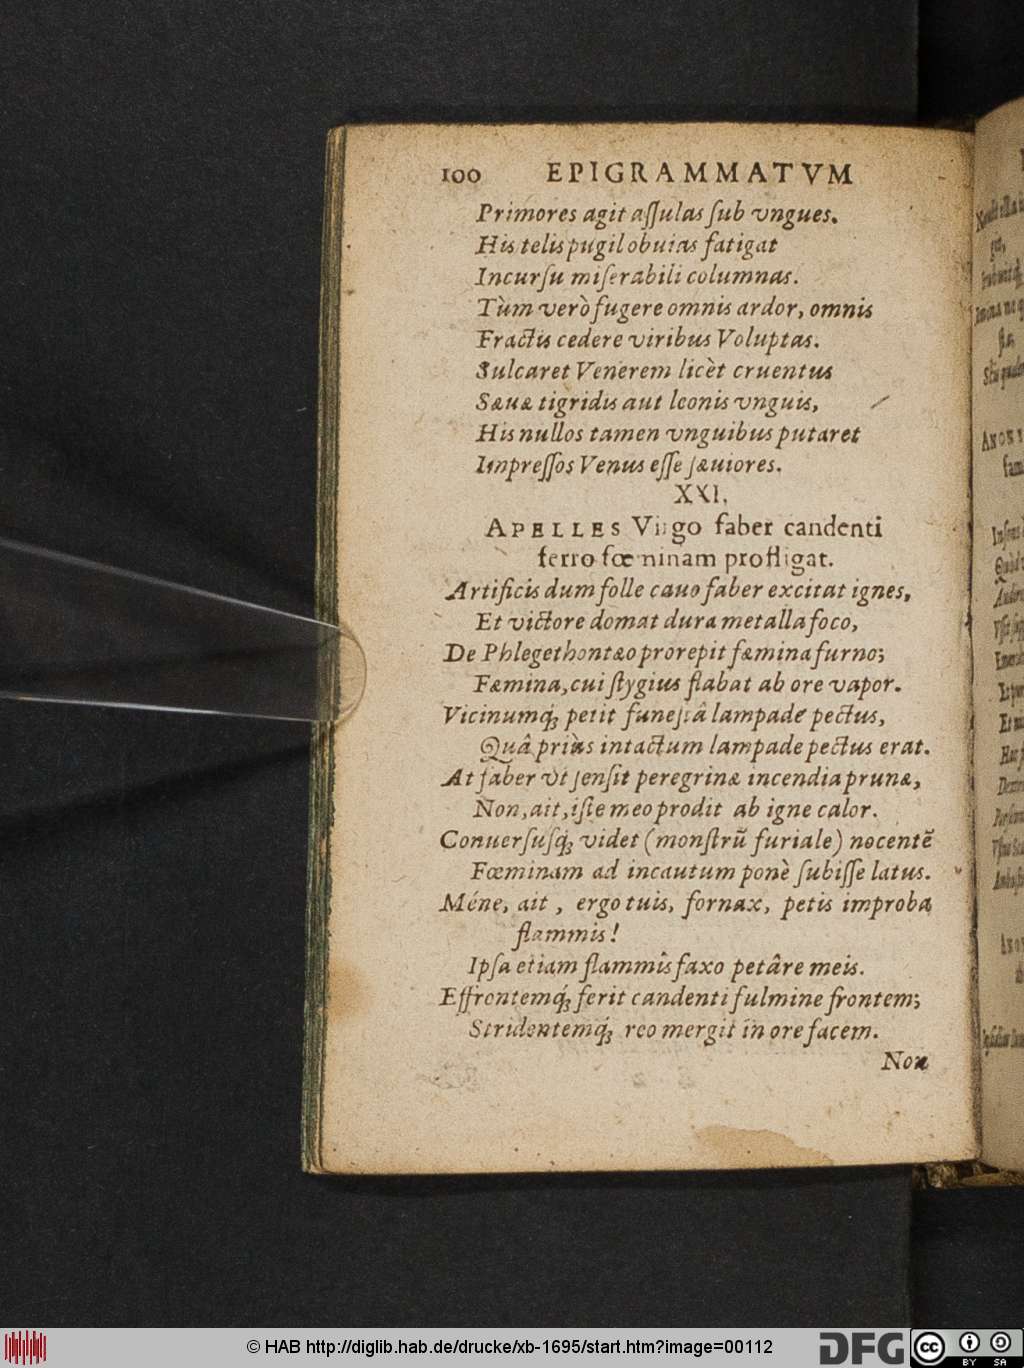 100 EPIGRAMMATVM
Primores agit aſſulas ſub vngues.
His telis pugil obuias fatigat
Incurſu miſerabili columnas.
Tùm verò fugere omnis ardor, omnis
Fractis cedere viribus Voluptas.
Sulcaret Venerem licèt cruentus
Sæuæ tigridis aut leonis vnguis,
His nullos tamen vnguibus putaret
Impreſſos Venus eſſe ſæuiores.
XXI.
APELLES Virgo faber candenti
ferro fœminam profligat.
Artificis dum folle cauo faber excitat ignes,
Et victore domat dura metalla foco,
De Phlegethontæo prorepit fæmina furno;
Fæmina, cui ſtygius flabat ab ore vapor.
Vicinumq́; petit funeſtâ lampade pectus,
Quâ priùs intactum lampade pectus erat.
At faber vt ſenſit peregrinæ incendia prunæ,
Non, ait, iſte meo prodit ab igne calor.
Conuerſuſq́; videt (monſtrũ furiale) nocentẽ
Fœminam ad incautum ponè ſubiſſe latus.
Méne, ait, ergo tuis, fornax, petis improba
flammis!
Ipſa etiam flammîs faxo petâre meis.
Effrontemq́; ferit candenti fulmine frontem;
Stridentemq́; reo mergit in ore facem.
Non
© HAB http://diglib.hab.de/drucke/xb-1695/start.htm?image=00112
DFG
cc BY SA